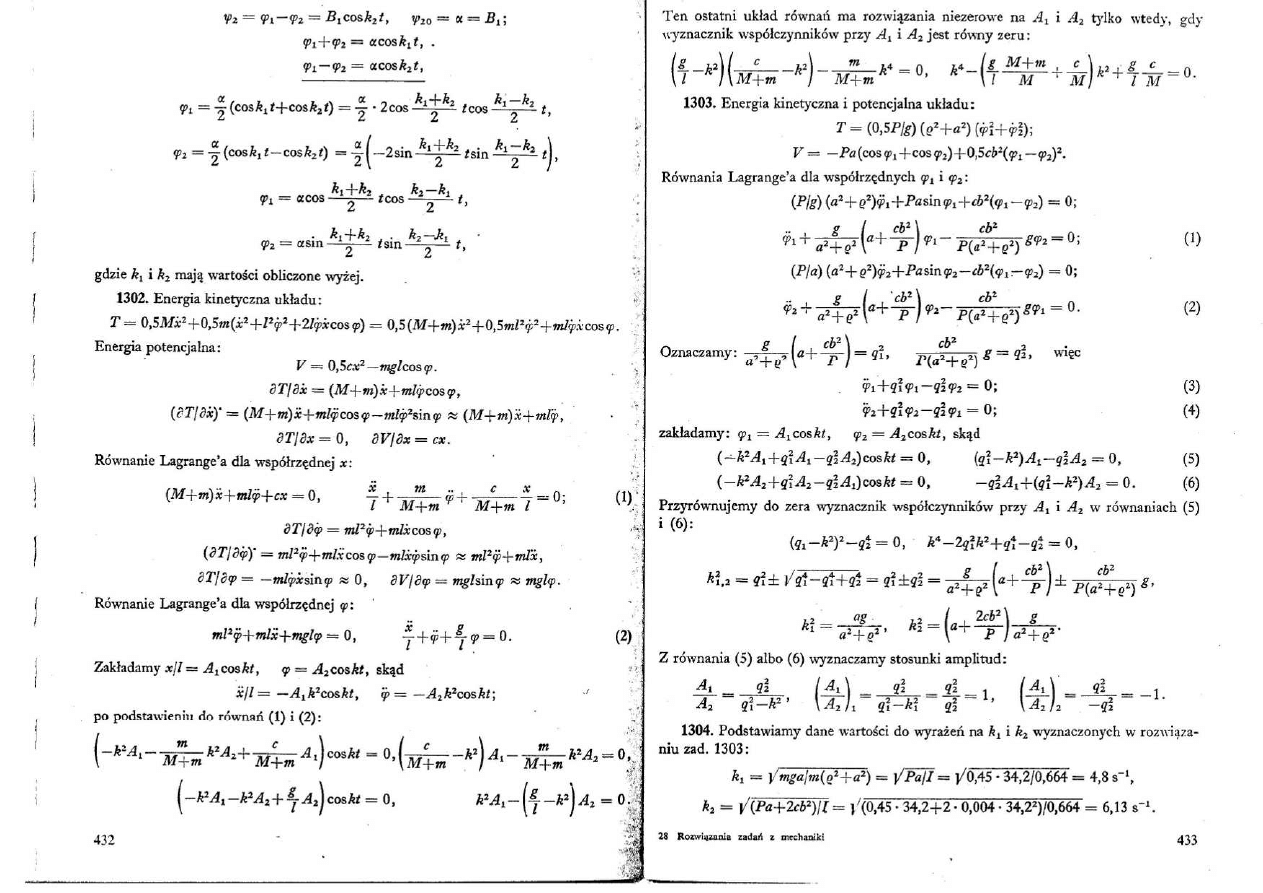 ψ₂ = φ₁−φ₂ = B₁cosk₂t, ψ₂₀ = α = B₁;
φ₁+φ₂ = αcosk₁t, .
φ₁−φ₂ = αcosk₂t,
φ₁ = α/2 (cosk₁t+cosk₂t) = α/2 · 2cos (k₁+k₂)/2 tcos (k₁−k₂)/2 t,
φ₂ = α/2 (cosk₁t−cosk₂t) = α/2 (−2sin (k₁+k₂)/2 tsin (k₁−k₂)/2 t),
φ₁ = αcos (k₁+k₂)/2 tcos (k₂−k₁)/2 t,
φ₂ = αsin (k₁+k₂)/2 tsin (k₂−k₁)/2 t,
gdzie k₁ i k₂ mają wartości obliczone wyżej.
1302. Energia kinetyczna układu:
T = 0,5Mẋ²+0,5m(ẋ²+l²φ̇²+2lφ̇ẋcosφ) = 0,5(M+m)ẋ²+0,5ml²φ̇²+mlφ̇ẋcosφ.
Energia potencjalna:
V = 0,5cx²−mglcosφ.
∂T/∂ẋ = (M+m)ẋ+mlφ̇cosφ,
(∂T/∂ẋ)˙ = (M+m)ẍ+mlφ̈cosφ−mlφ̇²sinφ ≈ (M+m)ẍ+mlφ̈,
∂T/∂x = 0, ∂V/∂x = cx.
Równanie Lagrange'a dla współrzędnej x:
(M+m)ẍ+mlφ̈+cx = 0, ẍ/l + m/(M+m) φ̈ + c/(M+m) x/l = 0; (1)
∂T/∂φ̇ = ml²φ̇+mlẋcosφ,
(∂T/∂φ̇)˙ = ml²φ̈+mlẍcosφ−mlẋφ̇sinφ ≈ ml²φ̈+mlẍ,
∂T/∂φ = −mlφ̇ẋsinφ ≈ 0, ∂V/∂φ = mglsinφ ≈ mglφ.
Równanie Lagrange'a dla współrzędnej φ:
ml²φ̈+mlẍ+mglφ = 0, ẍ/l+φ̈+g/l φ = 0. (2)
Zakładamy x/l = A₁coskt, φ = A₂coskt, skąd
ẍ/l = −A₁k²coskt, φ̈ = −A₂k²coskt;
po podstawieniu do równań (1) i (2):
(−k²A₁− m/(M+m) k²A₂+ c/(M+m) A₁)coskt = 0, (c/(M+m) −k²)A₁− m/(M+m) k²A₂ = 0,
(−k²A₁−k²A₂+ g/l A₂)coskt = 0, k²A₁−(g/l −k²)A₂ = 0.
432
Ten ostatni układ równań ma rozwiązania niezerowe na A₁ i A₂ tylko wtedy, gdy
wyznacznik współczynników przy A₁ i A₂ jest równy zeru:
(g/l −k²)(c/(M+m) −k²)− m/(M+m) k⁴ = 0, k⁴−(g/l (M+m)/M + c/M)k²+ g/l c/M = 0.
1303. Energia kinetyczna i potencjalna układu:
T = (0,5P/g) (ϱ²+a²) (φ̇₁²+φ̇₂²);
V = −Pa(cosφ₁+cosφ₂)+0,5cb²(φ₁−φ₂)².
Równania Lagrange'a dla współrzędnych φ₁ i φ₂:
(P/g) (a²+ϱ²)φ̈₁+Pasinφ₁+cb²(φ₁−φ₂) = 0;
φ̈₁+ g/(a²+ϱ²) (a+ cb²/P)φ₁− cb²/(P(a²+ϱ²)) gφ₂ = 0; (1)
(P/a) (a²+ϱ²)φ̈₂+Pasinφ₂−cb²(φ₁−φ₂) = 0;
φ̈₂+ g/(a²+ϱ²) (a+ cb²/P)φ₂− cb²/(P(a²+ϱ²)) gφ₁ = 0. (2)
Oznaczamy: g/(a²+ϱ²) (a+ cb²/P) = q₁², cb²/(P(a²+ϱ²)) g = q₂², więc
φ̈₁+q₁²φ₁−q₂²φ₂ = 0; (3)
φ̈₂+q₁²φ₂−q₂²φ₁ = 0; (4)
zakładamy: φ₁ = A₁coskt, φ₂ = A₂coskt, skąd
(−k²A₁+q₁²A₁−q₂²A₂)coskt = 0, (q₁²−k²)A₁−q₂²A₂ = 0, (5)
(−k²A₂+q₁²A₂−q₂²A₁)coskt = 0, −q₂²A₁+(q₁²−k²)A₂ = 0. (6)
Przyrównujemy do zera wyznacznik współczynników przy A₁ i A₂ w równaniach (5)
i (6):
(q₁−k²)²−q₂⁴ = 0, k⁴−2q₁²k²+q₁⁴−q₂⁴ = 0,
k²₁,₂ = q₁²± √(q₁⁴−q₁⁴+q₂⁴) = q₁²±q₂² = g/(a²+ϱ²) (a+ cb²/P)± cb²/(P(a²+ϱ²)) g,
k₁² = ag/(a²+ϱ²), k₂² = (a+ 2cb²/P) g/(a²+ϱ²).
Z równania (5) albo (6) wyznaczamy stosunki amplitud:
A₁/A₂ = q₂²/(q₁²−k²), (A₁/A₂)₁ = q₂²/(q₁²−k₁²) = q₂²/q₂² = 1, (A₁/A₂)₂ = q₂²/−q₂² = −1.
1304. Podstawiamy dane wartości do wyrażeń na k₁ i k₂ wyznaczonych w rozwiąza-
niu zad. 1303:
k₁ = √(mga/m(ϱ²+a²)) = √(Pa/I) = √(0,45 · 34,2/0,664) = 4,8 s⁻¹,
k₂ = √((Pa+2cb²)/I) = √((0,45 · 34,2+2 · 0,004 · 34,2²)/0,664) = 6,13 s⁻¹.
28 Rozwiązania zadań z mechaniki
433